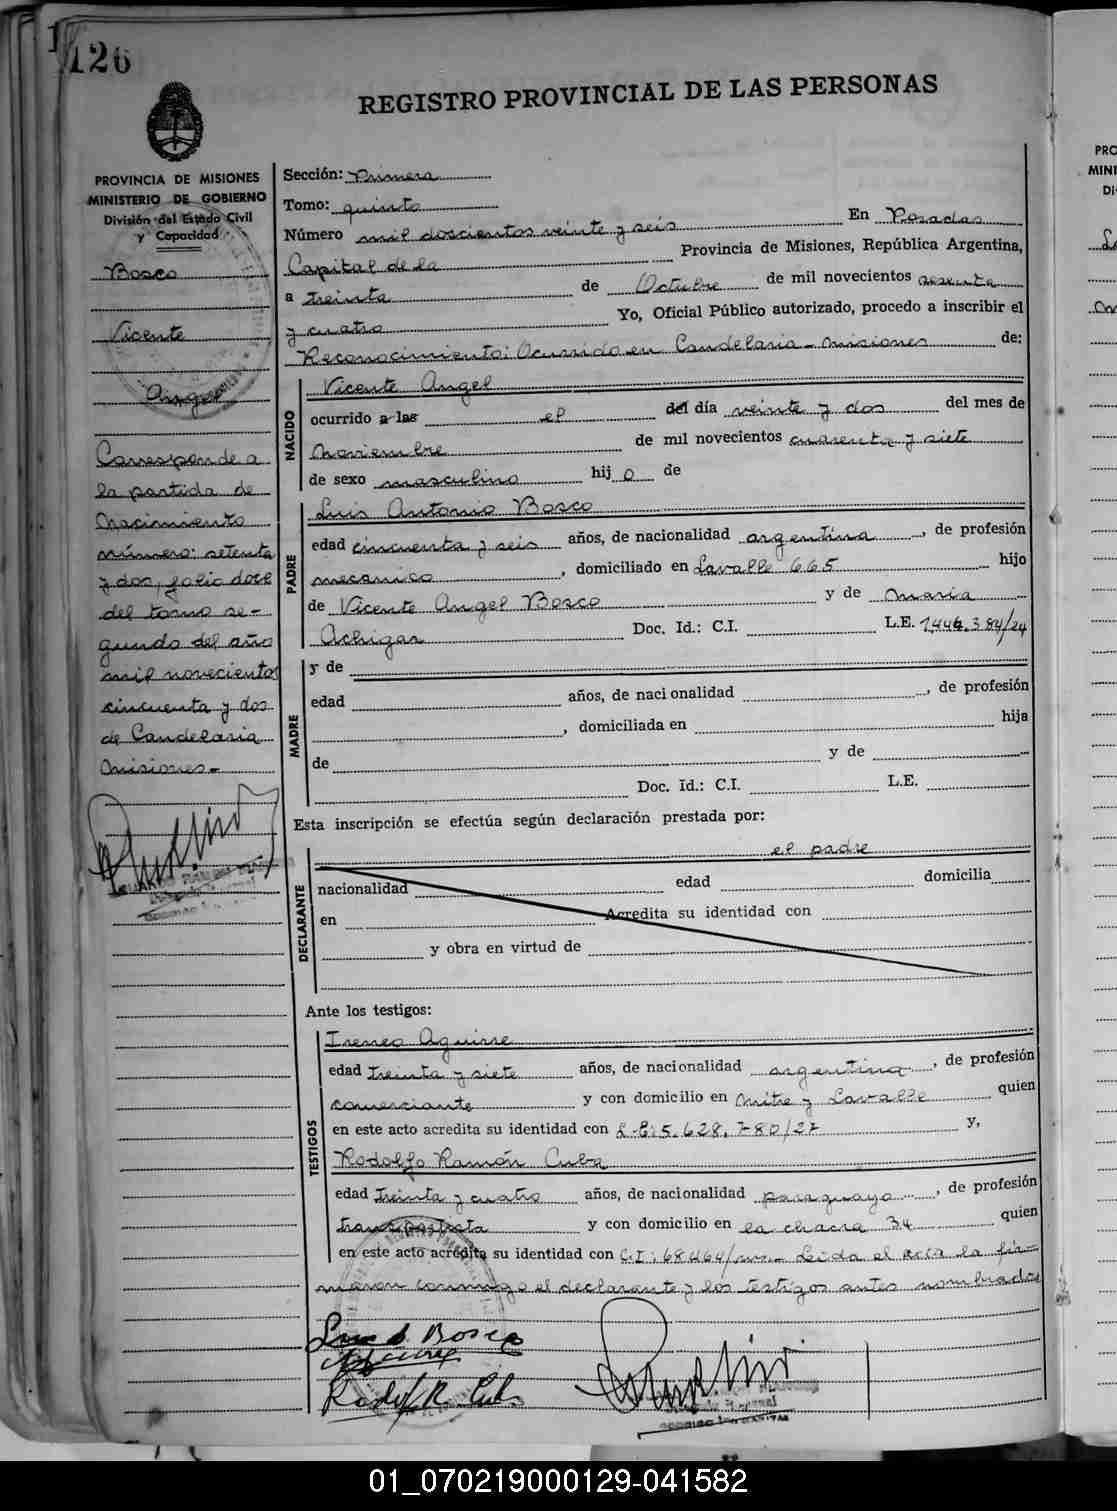 126
REGISTRO PROVINCIAL DE LAS PERSONAS
PROVINCIA DE MISIONES
MINISTERIO DE GOBIERNO
División del Estado Civil
y Capacidad
Bosco
Vicente
Angel
Corresponde a
la partida de
Nacimiento
número: setenta
y dos, folio doce
del tomo se-
gundo del año
mil novecientos
cincuenta y dos
de Candelaria
Misiones-
Sección: Primera
Tomo: quinto
Número mil doscientos veinte y seis En Posadas
Capital de la Provincia de Misiones, República Argentina,
a treinta de Octubre de mil novecientos sesenta
y cuatro Yo, Oficial Público autorizado, procedo a inscribir el
Reconocimiento: Ocurrido en Candelaria - Misiones de:
NACIDO
Vicente Angel
ocurrido a las el del día veinte y dos del mes de
Noviembre de mil novecientos cuarenta y siete
de sexo masculino hij o de
PADRE
Luis Antonio Bosco
edad cincuenta y seis años, de nacionalidad argentina, de profesión
mecanico, domiciliado en Lavalle 665 hijo
de Vicente Angel Bosco y de Maria
Achigar Doc. Id.: C.I. L.E. 1.446.384/24
MADRE
y de
edad años, de nacionalidad, de profesión
, domiciliada en hija
de y de
Doc. Id.: C.I. L.E.
Esta inscripción se efectúa según declaración prestada por:
DECLARANTE
el padre
nacionalidad edad domicilia
en Acredita su identidad con
y obra en virtud de
Ante los testigos:
TESTIGOS
Ireneo Aguirre
edad treinta y siete años, de nacionalidad argentina, de profesión
comerciante y con domicilio en Mitre y Lavalle quien
en este acto acredita su identidad con L.E: 5.628.780/27 y,
Rodolfo Ramón Cuba
edad treinta y cuatro años, de nacionalidad paraguaya, de profesión
transportista y con domicilio en la chacra 34 quien
en este acto acredita su identidad con C.I: 68464/mns.- Leída el acta la fir-
maron conmigo el declarante y los testigos antes nombrados
Luis A. Bosco
Rodolf R. Cub.
01_070219000129-041582